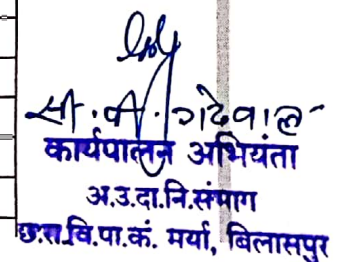 सी.पी. गढेवाल
कार्यपालन अभियंता
अ.उ.दा.नि.संभाग
छ.रा.वि.पा.कं. मर्या, बिलासपुर